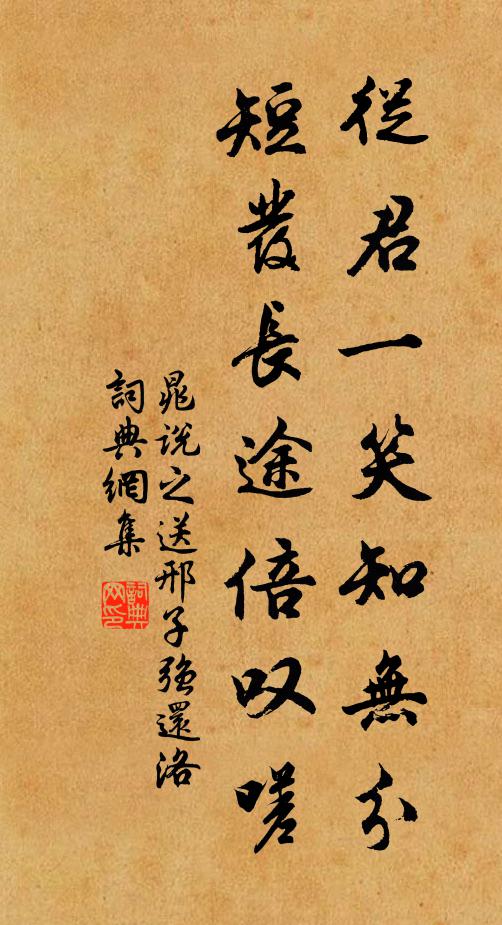 從君一笑知無分
短發長途倍叹嗟
晁說之送邢子強還洛
詞典網集
詞典网印